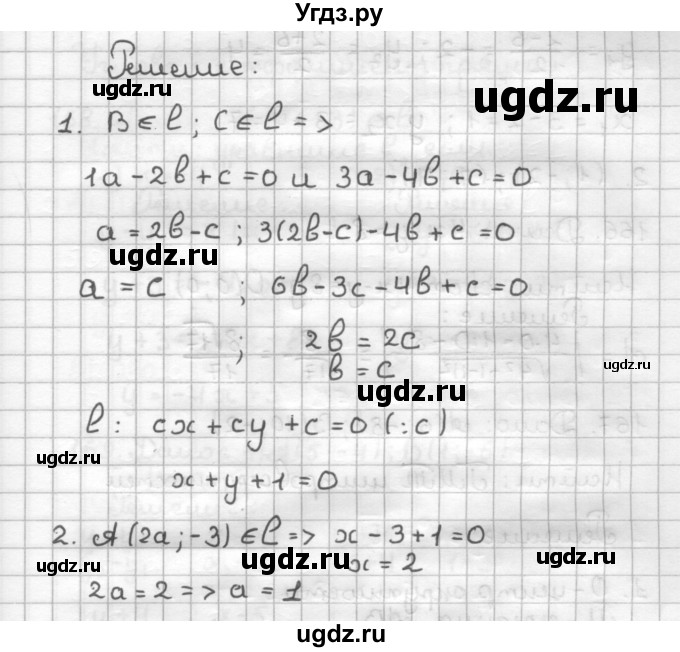 Угдз.ру
Решение:
ugdz.ru
ugdz.ru
1. B∈l; C∈l =>
1a-2b+c=0 и 3a-4b+c=0
a=2b-c; 3(2b-c)-4b+c=0
ugdz.ru
a=c ; 6b-3c-4b+c=0
; 2b=2c
ugdz.ru
b=c
ugdz.ru
l: cx+cy+c=0 (:c)
ugdz.ru
x+y+1=0
2. A(2a;-3)∈l=> x-3+1=0
ugdz.ru
ugdz.ru
x=2
2a=2=>a=1
ugdz.ru